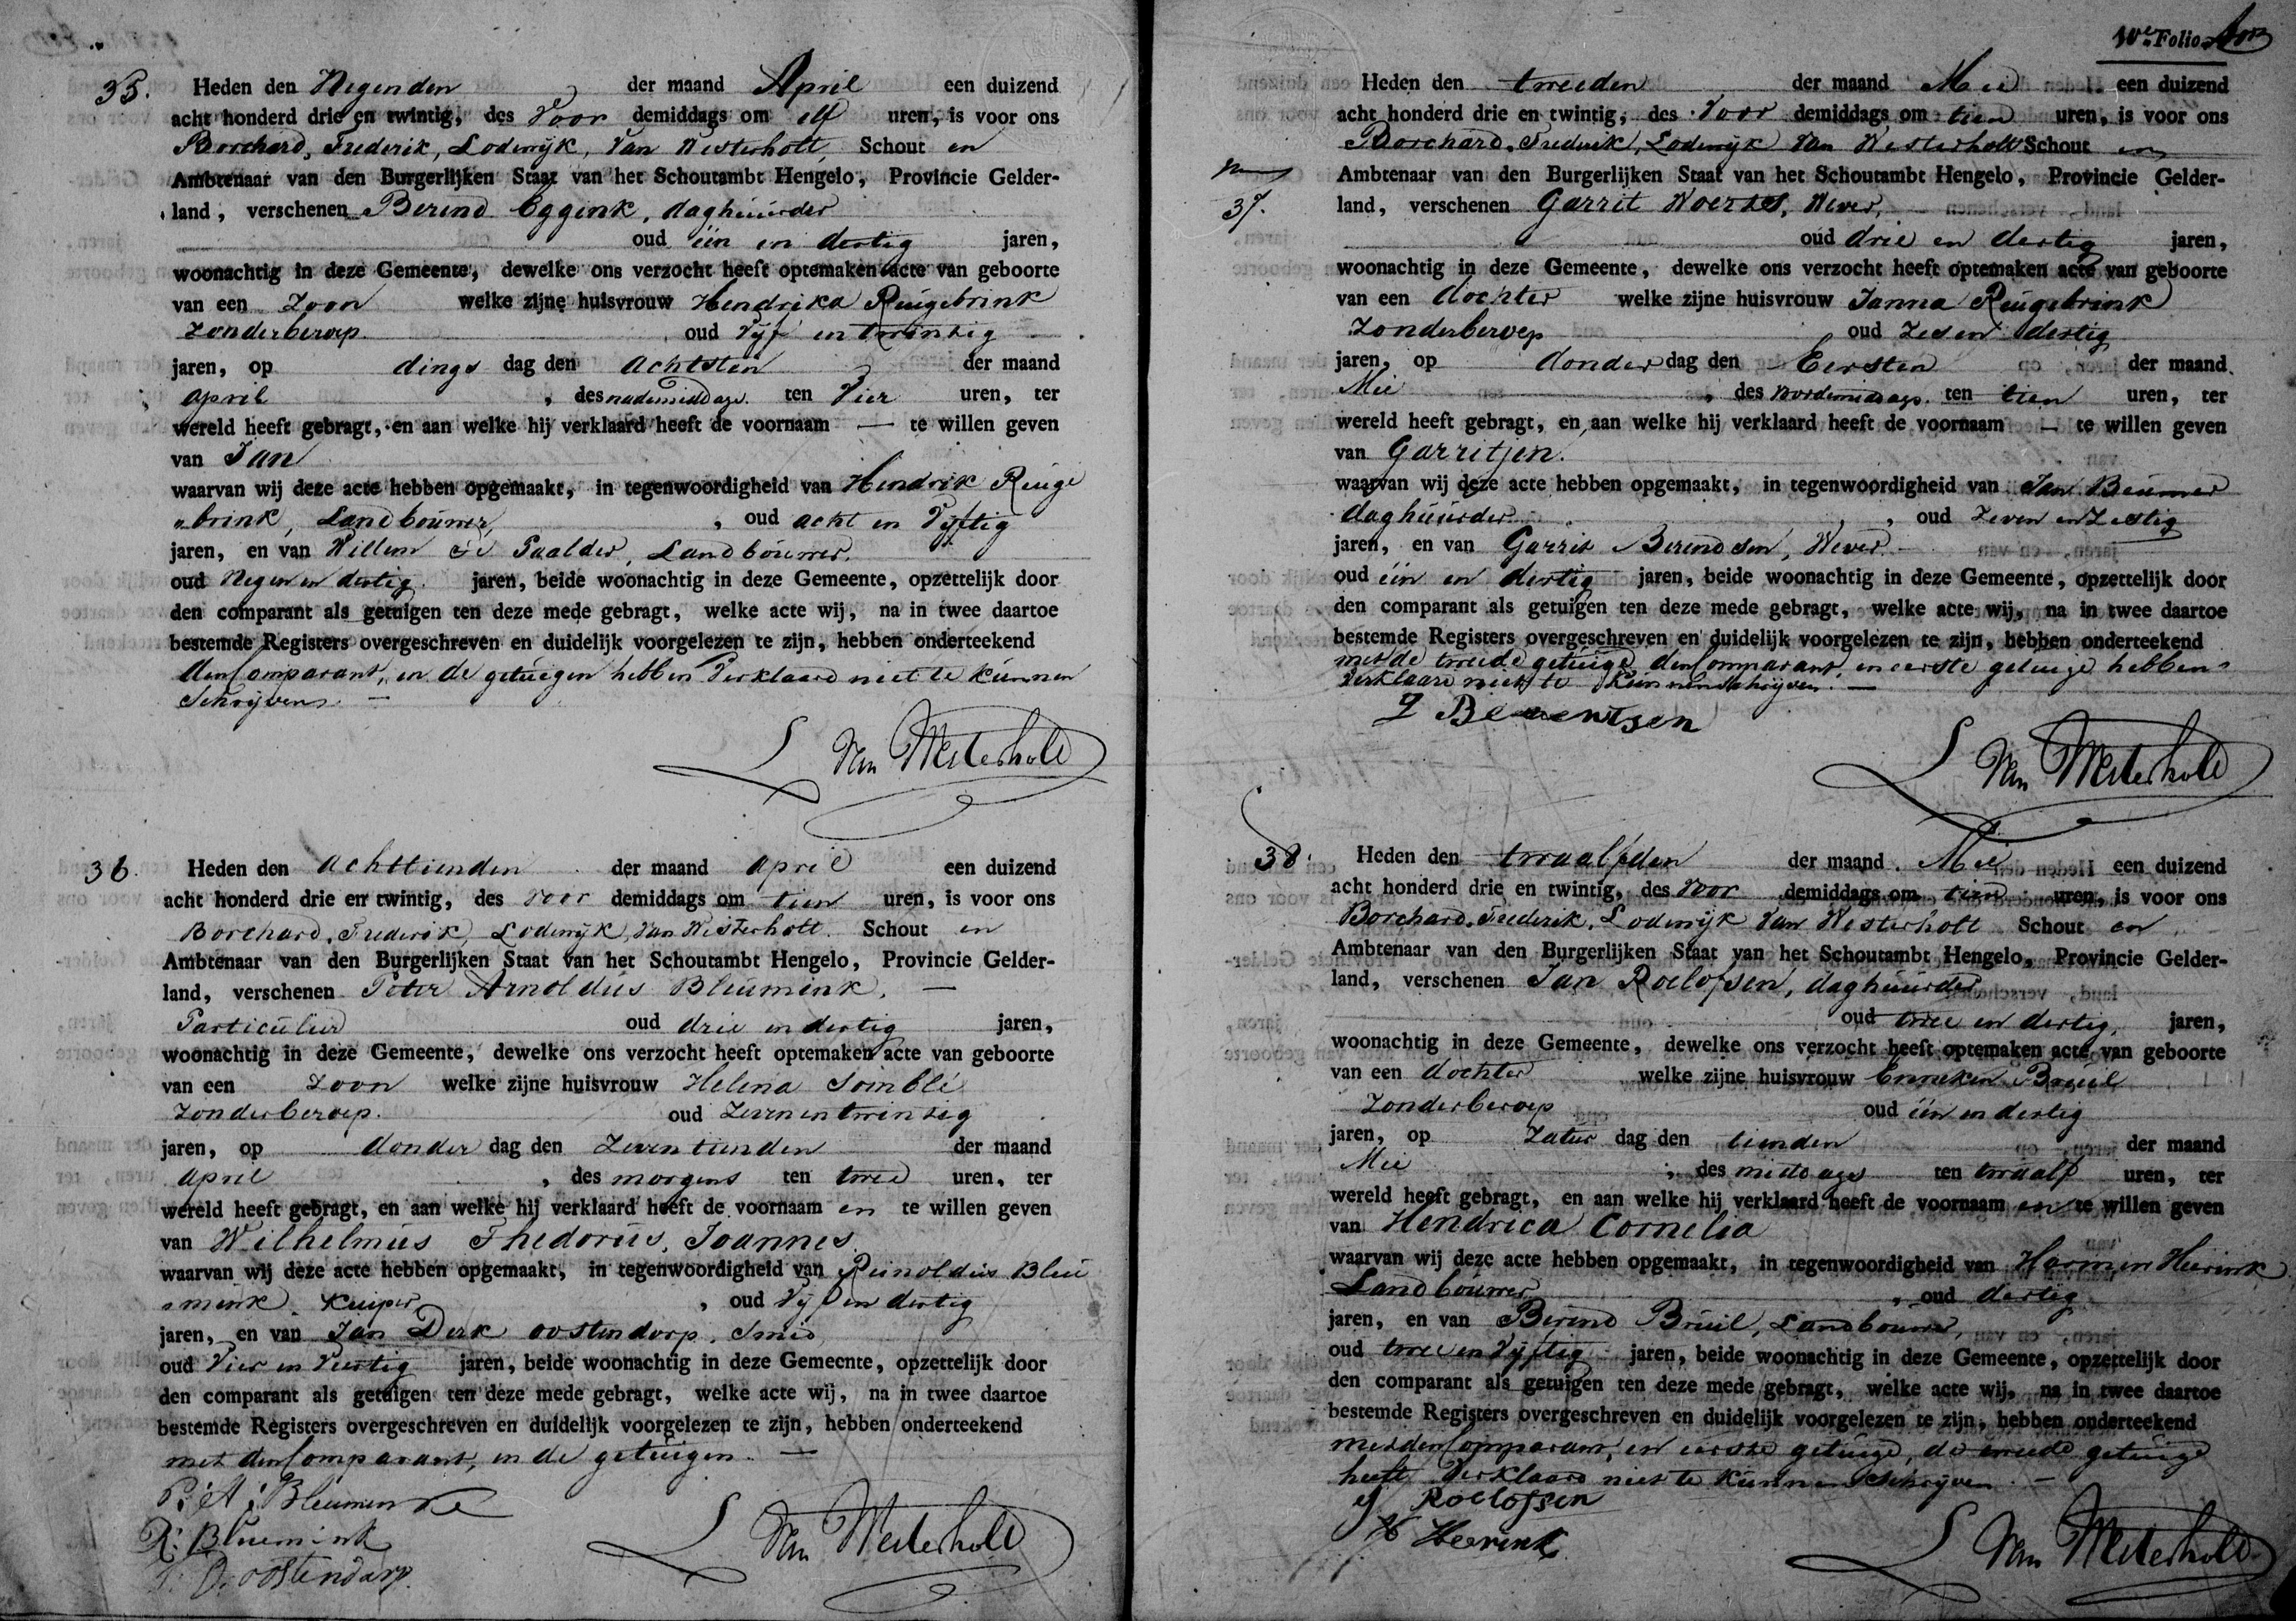 35. Heden den Negenden der maand April een duizend
acht honderd drie en twintig, des Voor demiddags om elf uren, is voor ons
Borchard, Frederik, Lodewijk, Van Westerholt, Schout en
Ambtenaar van den Burgerlijken Staat van het Schoutambt Hengelo, Provincie Gelder-
land, verschenen Berend Eggink, daghuurder
oud één en dertig jaren,
woonachtig in deze Gemeente, dewelke ons verzocht heeft optemaken acte van geboorte
van een Zoon welke zijne huisvrouw Hendrika Reugebrink
Zonderberoep oud Vijf en twintig
jaren, op dings dag den achtsten der maand
april, des nademiddags ten Vier uren, ter
wereld heeft gebragt, en aan welke hij verklaard heeft de voornaam — te willen geven
van Jan
waarvan wij deze acte hebben opgemaakt, in tegenwoordigheid van Hendrik Reuge
"brink, Landbouwer, oud acht en Vijftig
jaren, en van Willem Paalder, Landbouwer,
oud Negen en dertig jaren, beide woonachtig in deze Gemeente, opzettelijk door
den comparant als getuigen ten deze mede gebragt, welke acte wij, na in twee daartoe
bestemde Registers overgeschreven en duidelijk voorgelezen te zijn, hebben onderteekend
den Comparant, en de getuigen hebben Verklaard niet te kunnen
Schrijven. —
L Van Westerholt
36. Heden den achttienden der maand april een duizend
acht honderd drie en twintig, des voor demiddags om tien uren, is voor ons
Borchard, Frederik, Lodewijk, Van Westerholt. Schout en
Ambtenaar van den Burgerlijken Staat van het Schoutambt Hengelo, Provincie Gelder-
land, verschenen Peter Arnoldus Bleumink, —
Particulier oud drie en dertig jaren,
woonachtig in deze Gemeente, dewelke ons verzocht heeft optemaken acte van geboorte
van een Zoon welke zijne huisvrouw Helena
Zonderberoep. oud Zeven en twintig
jaren, op donder dag den Zeventienden der maand
april, des morgens ten twee uren, ter
wereld heeft gebragt, en aan welke hij verklaard heeft de voornaam en te willen geven
van Wilhelmus Thedorus, Joannes
waarvan wij deze acte hebben opgemaakt, in tegenwoordigheid van Reinoldus Bleu
"mink, Kuiper, oud Vijf en dertig
jaren, en van Jan Derk oostendorp, Smid,
oud Vier en Veertig jaren, beide woonachtig in deze Gemeente, opzettelijk door
den comparant als getuigen ten deze mede gebragt, welke acte wij, na in twee daartoe
bestemde Registers overgeschreven en duidelijk voorgelezen te zijn, hebben onderteekend
met den Comparant, en de getuigen. —
P: A: Bleumink
R: Bluemink
D. oostendarp.
L Van Westerholt
10e Folio
37. Heden den tweeden der maand Mei een duizend
acht honderd drie en twintig, des Voor demiddags om tien uren, is voor ons
Borchard, Frederik, Lodewijk Van Westerholt Schout en
Ambtenaar van den Burgerlijken Staat van het Schoutambt Hengelo, Provincie Gelder-
land, verschenen Garrit Woertes, Wever,
oud drie en dertig jaren,
woonachtig in deze Gemeente, dewelke ons verzocht heeft optemaken acte van geboorte
van een dochter welke zijne huisvrouw Janna Reugebrink
Zonderberoep oud Zes en dertig
jaren, op donder dag den Eersten der maand
Mei, des voordemiddags ten tien uren, ter
wereld heeft gebragt, en aan welke hij verklaard heeft de voornaam — te willen geven
van Garritjen.
waarvan wij deze acte hebben opgemaakt, in tegenwoordigheid van Jan Beumer
daghuurder, oud Zeven en Zestig
jaren, en van Garrit Berendsen, Wever.
oud één en dertig jaren, beide woonachtig in deze Gemeente, opzettelijk door
den comparant als getuigen ten deze mede gebragt, welke acte wij, na in twee daartoe
bestemde Registers overgeschreven en duidelijk voorgelezen te zijn, hebben onderteekend
met de tweede getuige, den Comparant, en eerste getuige hebben
Verklaard niet te Kunnen Schrijven. —
Berentsen
L Van Westerholt
38. Heden den twaalfden der maand Mei een duizend
acht honderd drie en twintig, des Voor demiddags om tien uren, is voor ons
Borchard, Frederik, Lodewijk Van Westerholt Schout en
Ambtenaar van den Burgerlijken Staat van het Schoutambt Hengelo, Provincie Gelder-
land, verschenen Jan Roelofsen, daghuurder
oud twee en dertig, jaren,
woonachtig in deze Gemeente, dewelke ons verzocht heeft optemaken acte van geboorte
van een dochter welke zijne huisvrouw Enneken Bruil
Zonderberoep oud één en dertig
jaren, op Zatur dag den tienden der maand
Mei, des middags ten twaalf uren, ter
wereld heeft gebragt, en aan welke hij verklaard heeft de voornaam en te willen geven
van Hendrica Cornelia
waarvan wij deze acte hebben opgemaakt, in tegenwoordigheid van Harmen Heerink
Landbouwer, oud dertig
jaren, en van Berend Bruil, Landbouwer,
oud twee en Vijftig jaren, beide woonachtig in deze Gemeente, opzettelijk door
den comparant als getuigen ten deze mede gebragt, welke acte wij, na in twee daartoe
bestemde Registers overgeschreven en duidelijk voorgelezen te zijn, hebben onderteekend
met den Comparant, en eerste getuige, de tweede getuige
heeft Verklaard niet te Kunnen Schrijven. —
J Roelofsen
H Heerink
L Van Westerholt